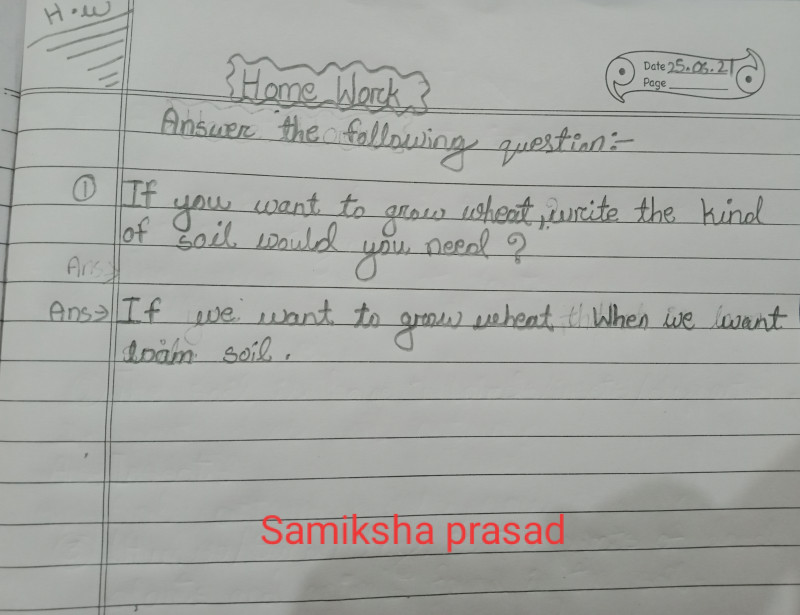 H.W
Home Worck
Date 25.08.21
Page
Answer the following question:-
① If you want to grow wheat, write the kind
of soil would you need?
Ans→
Ans→ If we want to grow wheat When we want
loam soil.
Samiksha prasad